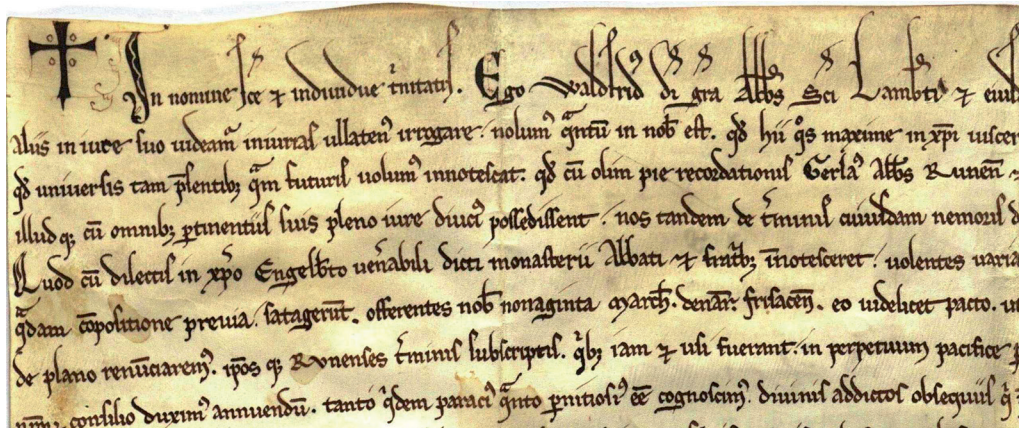 In nomine sce ⁊ individue t̄nitatis. Ego Waldfrid di gra Abbs Sci Lambti ⁊ eiusd
aliis in iure suo videam̄ iniurias ullaten᷒ irrogare. nolum᷒ q̄ntū in nob̄ est. qđ hii q̊s maxime in xp̄i viscer
qđ universis tam p̄sentib; q̄m futuris volum᷒ innotescat. qđ cū olim pie recordationis Gerla᷒ Abbs Runen̄ ⁊
illud q; cū omnib; ꝑtinentiis suis pleno iure diuci᷒ possedissent. nos tandem de t̄minis cuiusdam nemoris d
Quod cū dilectis in xp̄o Engelb̄to ven̄abili dicti monasterii Abbati ⁊ fratrib; īnotesceret. volentes varia
q̄dam cōpositione previa. satagerūt. offerentes nob̄ nonaginta march̄. denar̄. frisacen̄. eo videlicet pacto. ut
de plano renūciarem᷒. ip̄os q; Runenses t̄minis subscriptis. q̊b; iam ⁊ usi fuerant. in perpetuum pacifice p
consilio duxim᷒ annuendū. tanto q̊dem paraci᷒ q̄nto ꝑnitiosi᷒ eē cognoscim᷒. divinis addictos obsequiis